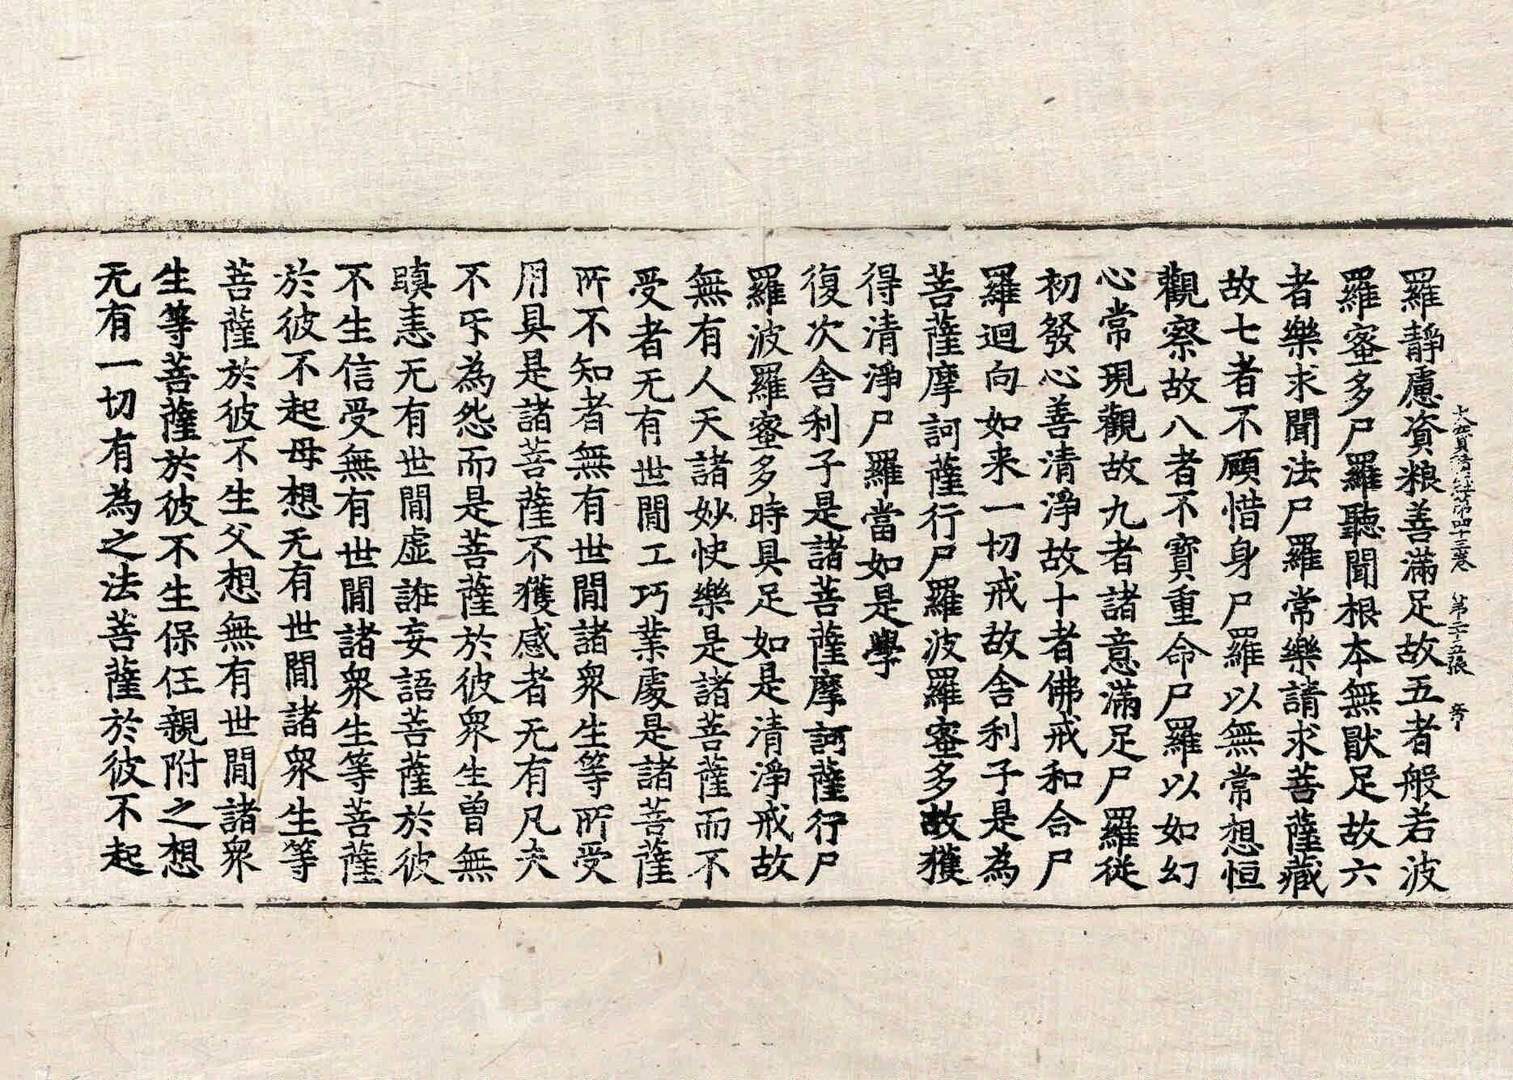 羅靜慮資粮善滿足故五者般若波
大寶積經第四十三卷 第二十五張
羅蜜多尸羅聽聞根本無猒足故六
者樂求聞法尸羅常樂請求菩薩藏
故七者不顧惜身尸羅以無常想恒
觀察故八者不寶重命尸羅以如幻
心常現觀故九者諸意滿足尸羅從
初發心善清淨故十者佛戒和合尸
羅迴向如来一切戒故舍利子是為
菩薩摩訶薩行尸羅波羅蜜多故獲
得清淨尸羅當如是學
復次舍利子是諸菩薩摩訶薩行尸
羅波羅蜜多時具足如是清淨戒故
無有人天諸妙快樂是諸菩薩而不
受者无有世閒工巧業處是諸菩薩
所不知者無有世閒諸衆生等所受
用具是諸菩薩不獲感者无有凡夫
不㸦為怨而是菩薩於彼衆生曽無
瞋恚无有世閒虛誑妄語菩薩於彼
不生信受無有世閒諸衆生等菩薩
於彼不起母想无有世閒諸衆生等
菩薩於彼不生父想無有世閒諸衆
生等菩薩於彼不生保任親附之想
无有一切有為之法菩薩於彼不起